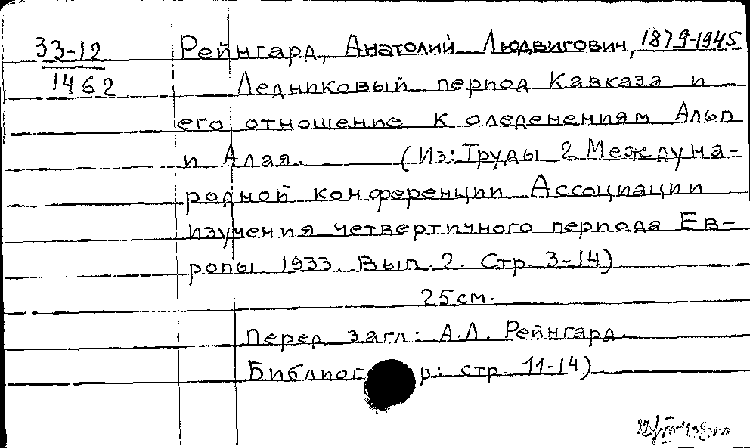 33-12
1462
Рейнгард, Анатолий Людвигович, 1879-1945
Ледниковый период Кавказа и
его отношение к оледенениям Альп
и Алая. (Из: Труды 2 Междуна-
родной конференции Ассоциации
изучения четвертичного периода Ев-
ропы 1933. Вып. 2. Стр. 3-14)
25см.
Перед загл: А.Л. Рейнгард
Библиог р: стр. 11-14)